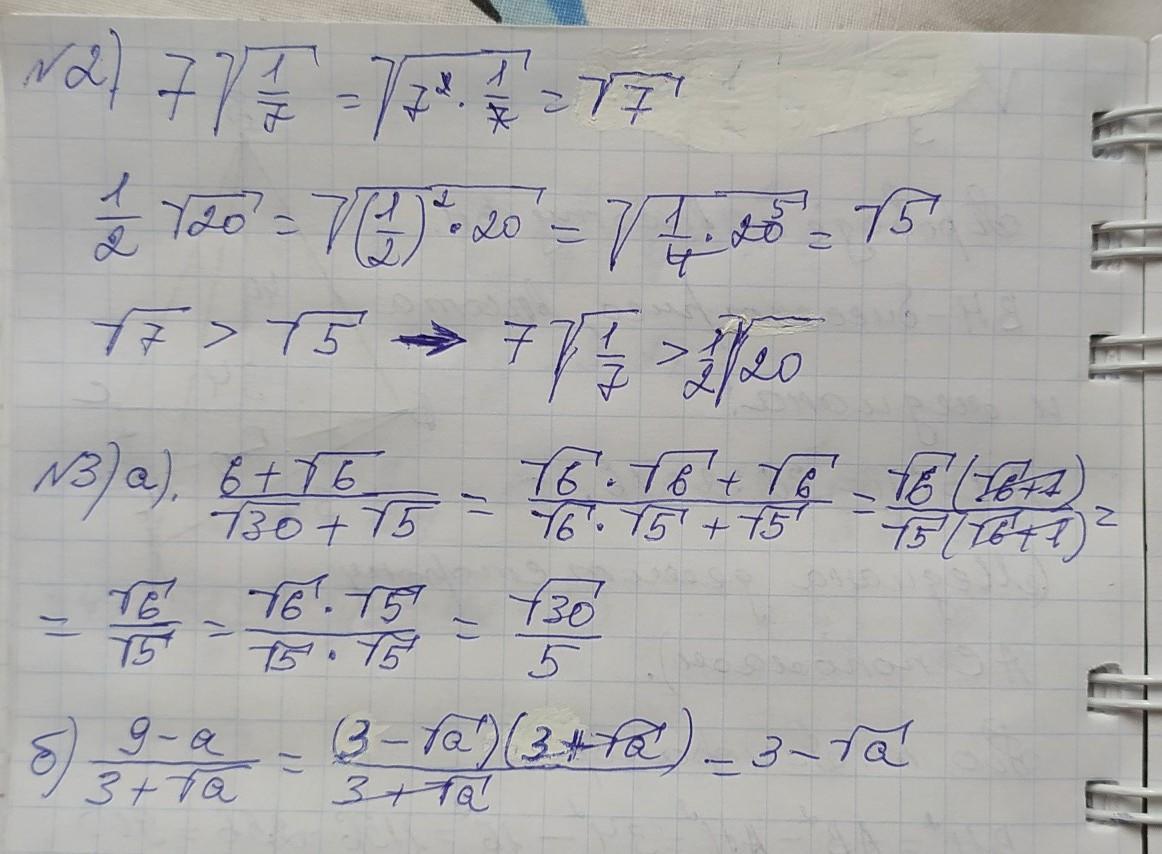 №2) 7√(1/7) = √(7²·1/7) = √7
1/2 √20 = √((1/2)²·20) = √(1/4·20⁵) = √5
√7 > √5 → 7√(1/7) > 1/2√20
№3) а). (6+√6)/(√30+√5) = (√6·√6+√6)/(√6·√5+√5) = (√6(√6+1))/(√5(√6+1)) =
= √6/√5 = (√6·√5)/(√5·√5) = √30/5
б) (9-a)/(3+√a) = ((3-√a)(3+√a))/(3+√a) = 3-√a